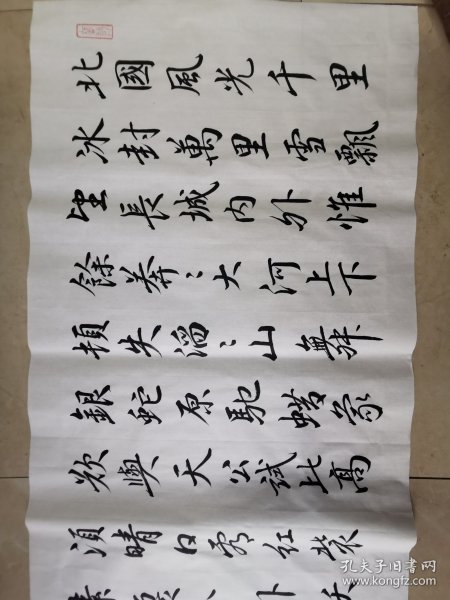 北國風光千里
冰封萬里雪飄
望長城内外惟
餘莽〻大河上下
頓失滔〻山舞
銀蛇原馳蜡象
欲與天公試比高
須晴日看紅裝
孔夫子旧书网
www.kongfz.com